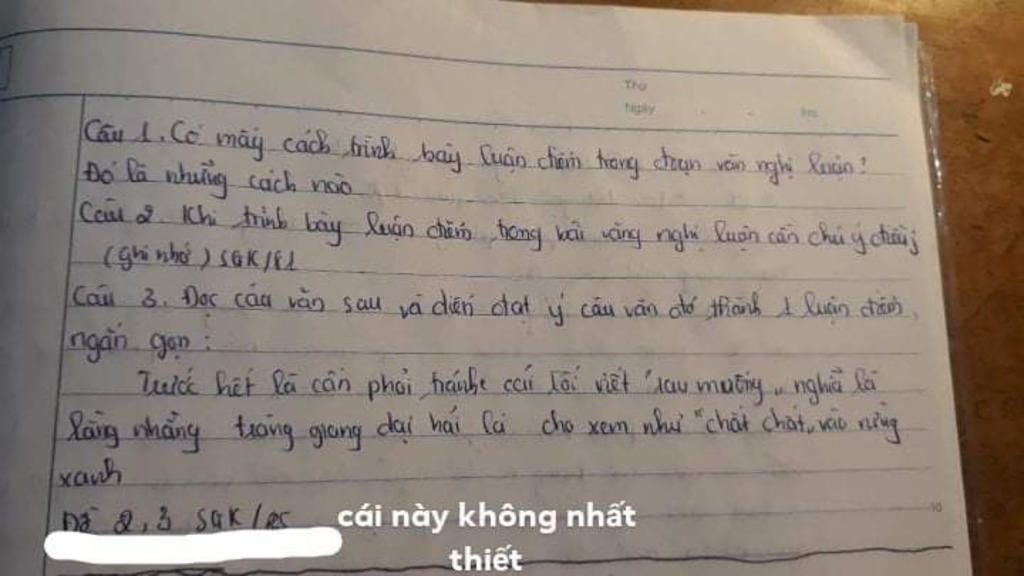 Thứ
Ngày
Câu 1. Có mấy cách trình bày luận điểm trong đoạn văn nghị luận?
Đó là những cách nào
Câu 2. Khi trình bày luận điểm trong bài văng nghị luận cần chú ý điều j
(ghi nhớ) SGK/81
Câu 3. Đọc câu văn sau và diễn đạt ý câu văn đó thành 1 luận điểm
ngắn gọn:
Trước hết là cần phải tránh cái lối viết "rau muống" nghĩa là
lằng nhằng tràng giang đại hải là cho xem như "chắt chắt" vào rừng
xanh
Đề 2, 3 SGK/85
cái này không nhất
thiết